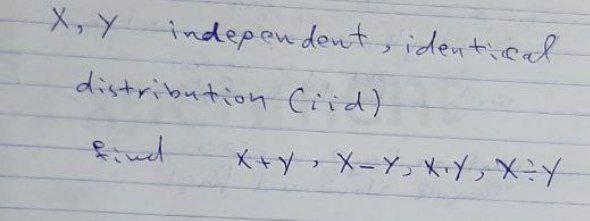 X, Y independent, identical
distribution (iid)
find X+Y, X-Y, X.Y, X÷Y